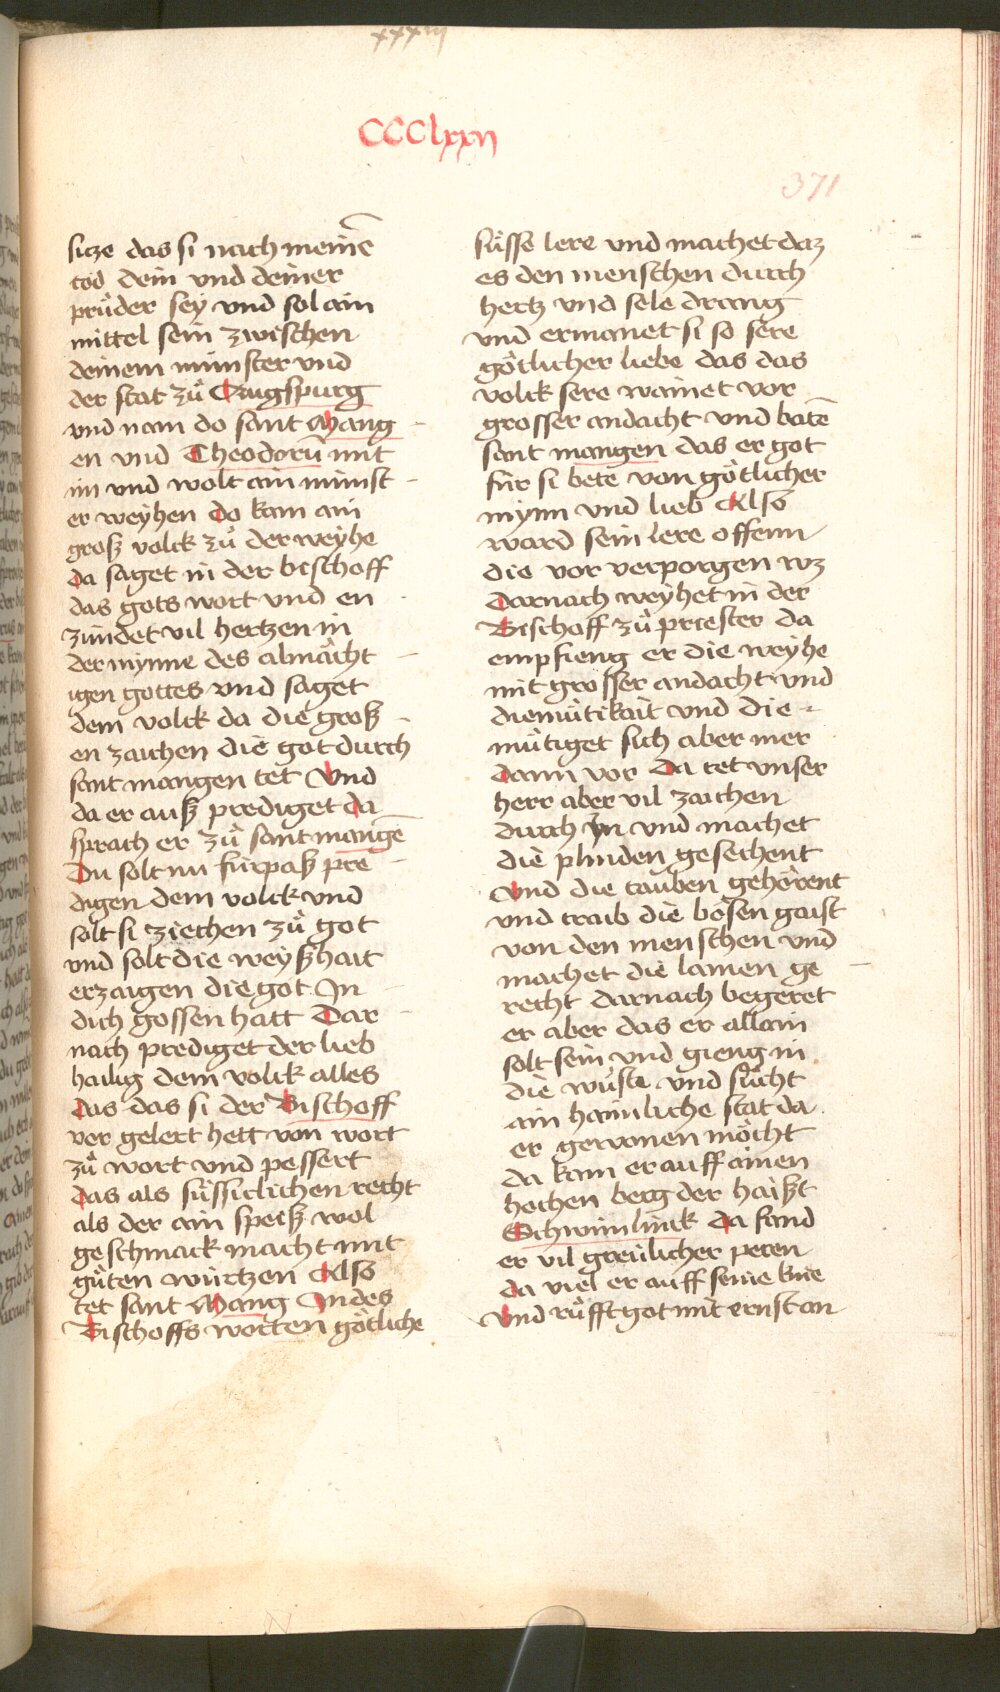 xxxiij
CCClxxij
371
sitze das si nach meinē
tod dein und deiner
průder seÿ und sol ain
mittel sein zwischen
deinem münster und
der stat zů Augspurg
und nam do sant Mang
en und Theodorū mit
im und wolt ain münst
er weÿhen do kam ain
groß volck zů der weÿhe
da saget in der bischoff
das gots wort und en
zündet vil hertzen in
der mÿnne des almächt
igen gottes und saget
dem volck da die groß
en zaichen die got durch
sant mangen tet Und
da er auß prediget da
sprach er zů sant mangē
Du solt nu fürpaß pre
digen dem volck und
solt si ziechen zů got
und solt die weÿßhait
erzaigen die got In
dich gossen hatt Dar
nach prediget der lieb
hailig dem volck alles
das das si der Bischoff
vor gelert hett von wort
zů wort und pessert
das als süssiclichen recht
als der ain speiß wol
geschmack macht mit
gůten würtzen Also
tet sant Mang In des
Bischoffs worten götliche
süsse lere und machet daz
es den menschen durch
hertz und sele drang
und ermanet si so sere
götlicher liebe das das
volck sere wainet vor
grosser andacht und batē
sant mangen das er got
für si bete von götlicher
mÿnn und lieb Also
ward sein lere offenn
die vor verporgen wz
Darnach weÿhet in der
Bischoff zů priester da
empfieng er die weÿhe
mit grosser andacht und
diemütikait und die
mütiget sich aber mer
dann vor Da tet unser
herr aber vil zaichen
durch Jn und machet
die plinden gesechent
Und die tauben gehörent
und traib die bösen gaist
von den menschen und
machet die lamen ge
recht darnach begeret
er aber das er allain
solt sein und gieng in
die wüste und sůcht
ain haimliche stat da
er gewonen möcht
da kam er auff ainen
hochen berg der haißt
Schwimlinck Da fand
er vil greülicher peren
da viel er auff seine knie
Und růfft got mit ernst an